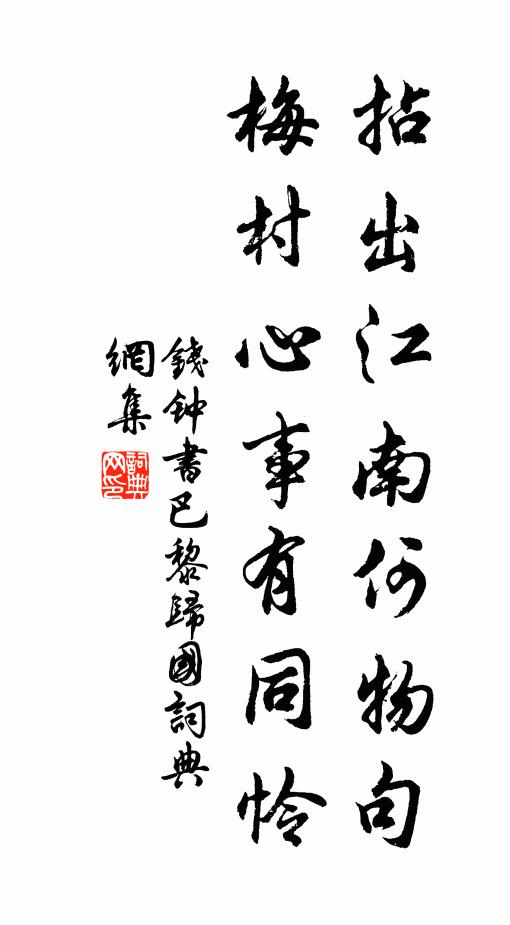 拈出江南何物句
梅村心事有同怜
錢钟書巴黎歸國詞典
網集
詞典
网印